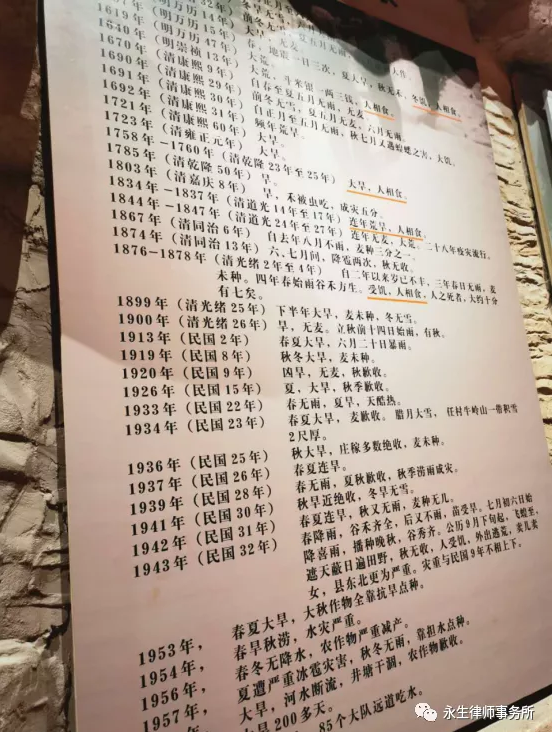 1619年（明万历47年）
1640年（明崇祯13年） 大荒。
1670年（清康熙9年） 大荒，斗米银一两三钱，人相食。
1690年（清康熙29年） 自春至夏五月无雨，无麦。
1691年（清康熙30年） 前冬无雪，夏五月无麦，六月无雨。
1692年（清康熙31年） 自正月至五月无雨，秋七月又遇蝗蝻之害，大饥。
1721年（清康熙60年） 频年荒旱。
1723年（清雍正元年） 大旱。
1758年－1760年（清乾隆23年至25年） 大旱，人相食。
1785年（清乾隆50年） 旱。
1803年（清嘉庆8年） 旱，禾被虫吃，成灾五分。
1834年－1837年（清道光14年至17年） 连年荒旱，人相食。
1844年－1847年（清道光24年至27年） 连年无麦，大荒，二十八年疫灾流行。
1867年（清同治6年） 自去年八月不雨，麦种三分之一。
1874年（清同治13年） 六、七月间，降雹两次，秋无收。
1876－1878年（清光绪2年至4年） 自二年以来岁已不丰，三年春日无雨，麦
未种。四年春始雨谷禾方生。受饥，人相食，人之死者，大约十
有七矣。
1899年（清光绪25年） 下半年大旱，麦未种，冬无雪。
1900年（清光绪26年） 旱，无麦。立秋前十四日始雨，有秋。
1913年（民国2年） 春夏大旱，六月二十日暴雨。
1919年（民国8年） 秋冬大旱，麦未种。
1920年（民国9年） 凶旱，无麦，秋歉收。
1926年（民国15年） 夏，大旱，秋季歉收。
1933年（民国22年） 春无雨，夏旱，天酷热。
1934年（民国23年） 春夏大旱，麦歉收。腊月大雪，任村牛岭山一带积雪
2尺厚。
1936年（民国25年） 秋大旱，庄稼多数绝收，麦未种。
1937年（民国26年） 春夏连旱。
1939年（民国28年） 春无雨，夏秋歉收，秋季涝雨成灾。
1941年（民国30年） 秋旱近绝收，冬旱无雪。
1942年（民国31年） 春夏连旱，秋又无雨，麦种无几。
1943年（民国32年） 春降雨，谷禾齐全，后又不雨，苗受旱。七月初六日始
降喜雨，播种晚秋，谷秀齐。公历9月下旬起，飞蝗至，
遮天蔽日遍田野，秋无收，人受饥，外出逃荒，卖儿卖
女，县东北更为严重。灾重与民国9年不相上下。
1953年， 春夏大旱，大秋作物全靠抗旱点种。
1954年， 春旱秋涝，水灾严重。
1956年， 春冬无降水，农作物严重减产。
1957年， 夏遭严重冰雹灾害，秋冬无雨，靠担水点种。
大旱，河水断流，井塘干涸，农作物歉收。
大旱200多天。
85个大队远道吃水。
永生律师事务所